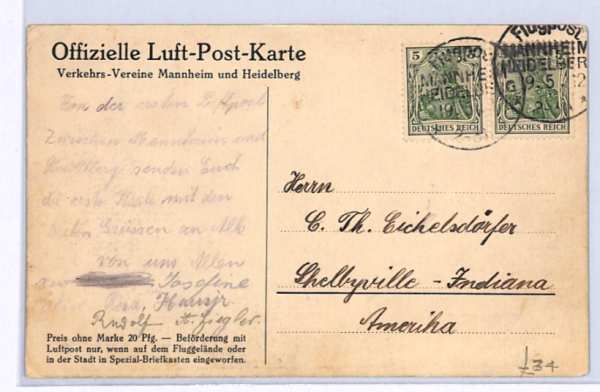 Offizielle Luft-Post-Karte
Verkehrs-Vereine Mannheim und Heidelberg
Von der ersten Luftpost
zwischen Mannheim und
Heidelberg senden Euch
die erste Karte mit den
besten Grüssen an Alle
von uns Allen
Josefine
Rosa, Hansjr.
Rudolf A. Ziegler.
Preis ohne Marke 20 Pfg. — Beförderung mit
Luftpost nur, wenn auf dem Fluggelände oder
in der Stadt in Spezial-Briefkasten eingeworfen.
5
DEUTSCHES REICH
DEUTSCHES REICH
Flugpost
MANNHEIM
HEIDELBERG
19.5.12
Herrn
C. Th. Eichelsdörfer
Shelbyville - Indiana
Amerika
£34